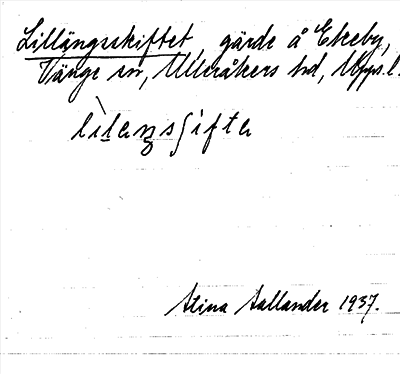 Lillängsskiftet, gärde å Ekeby,
Vänge sn, Ulleråkers hd, Upps.l.
lìlęŋsʃifta
Stina Sallander 1937.